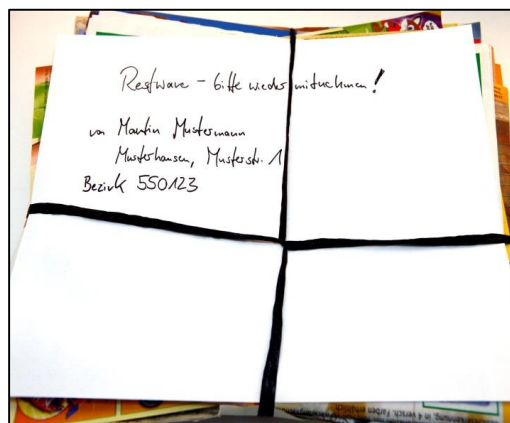 Restware - bitte wieder mitnehmen!
von Martin Mustermann
Musterhausen, Musterstr. 1
Bezirk 550123